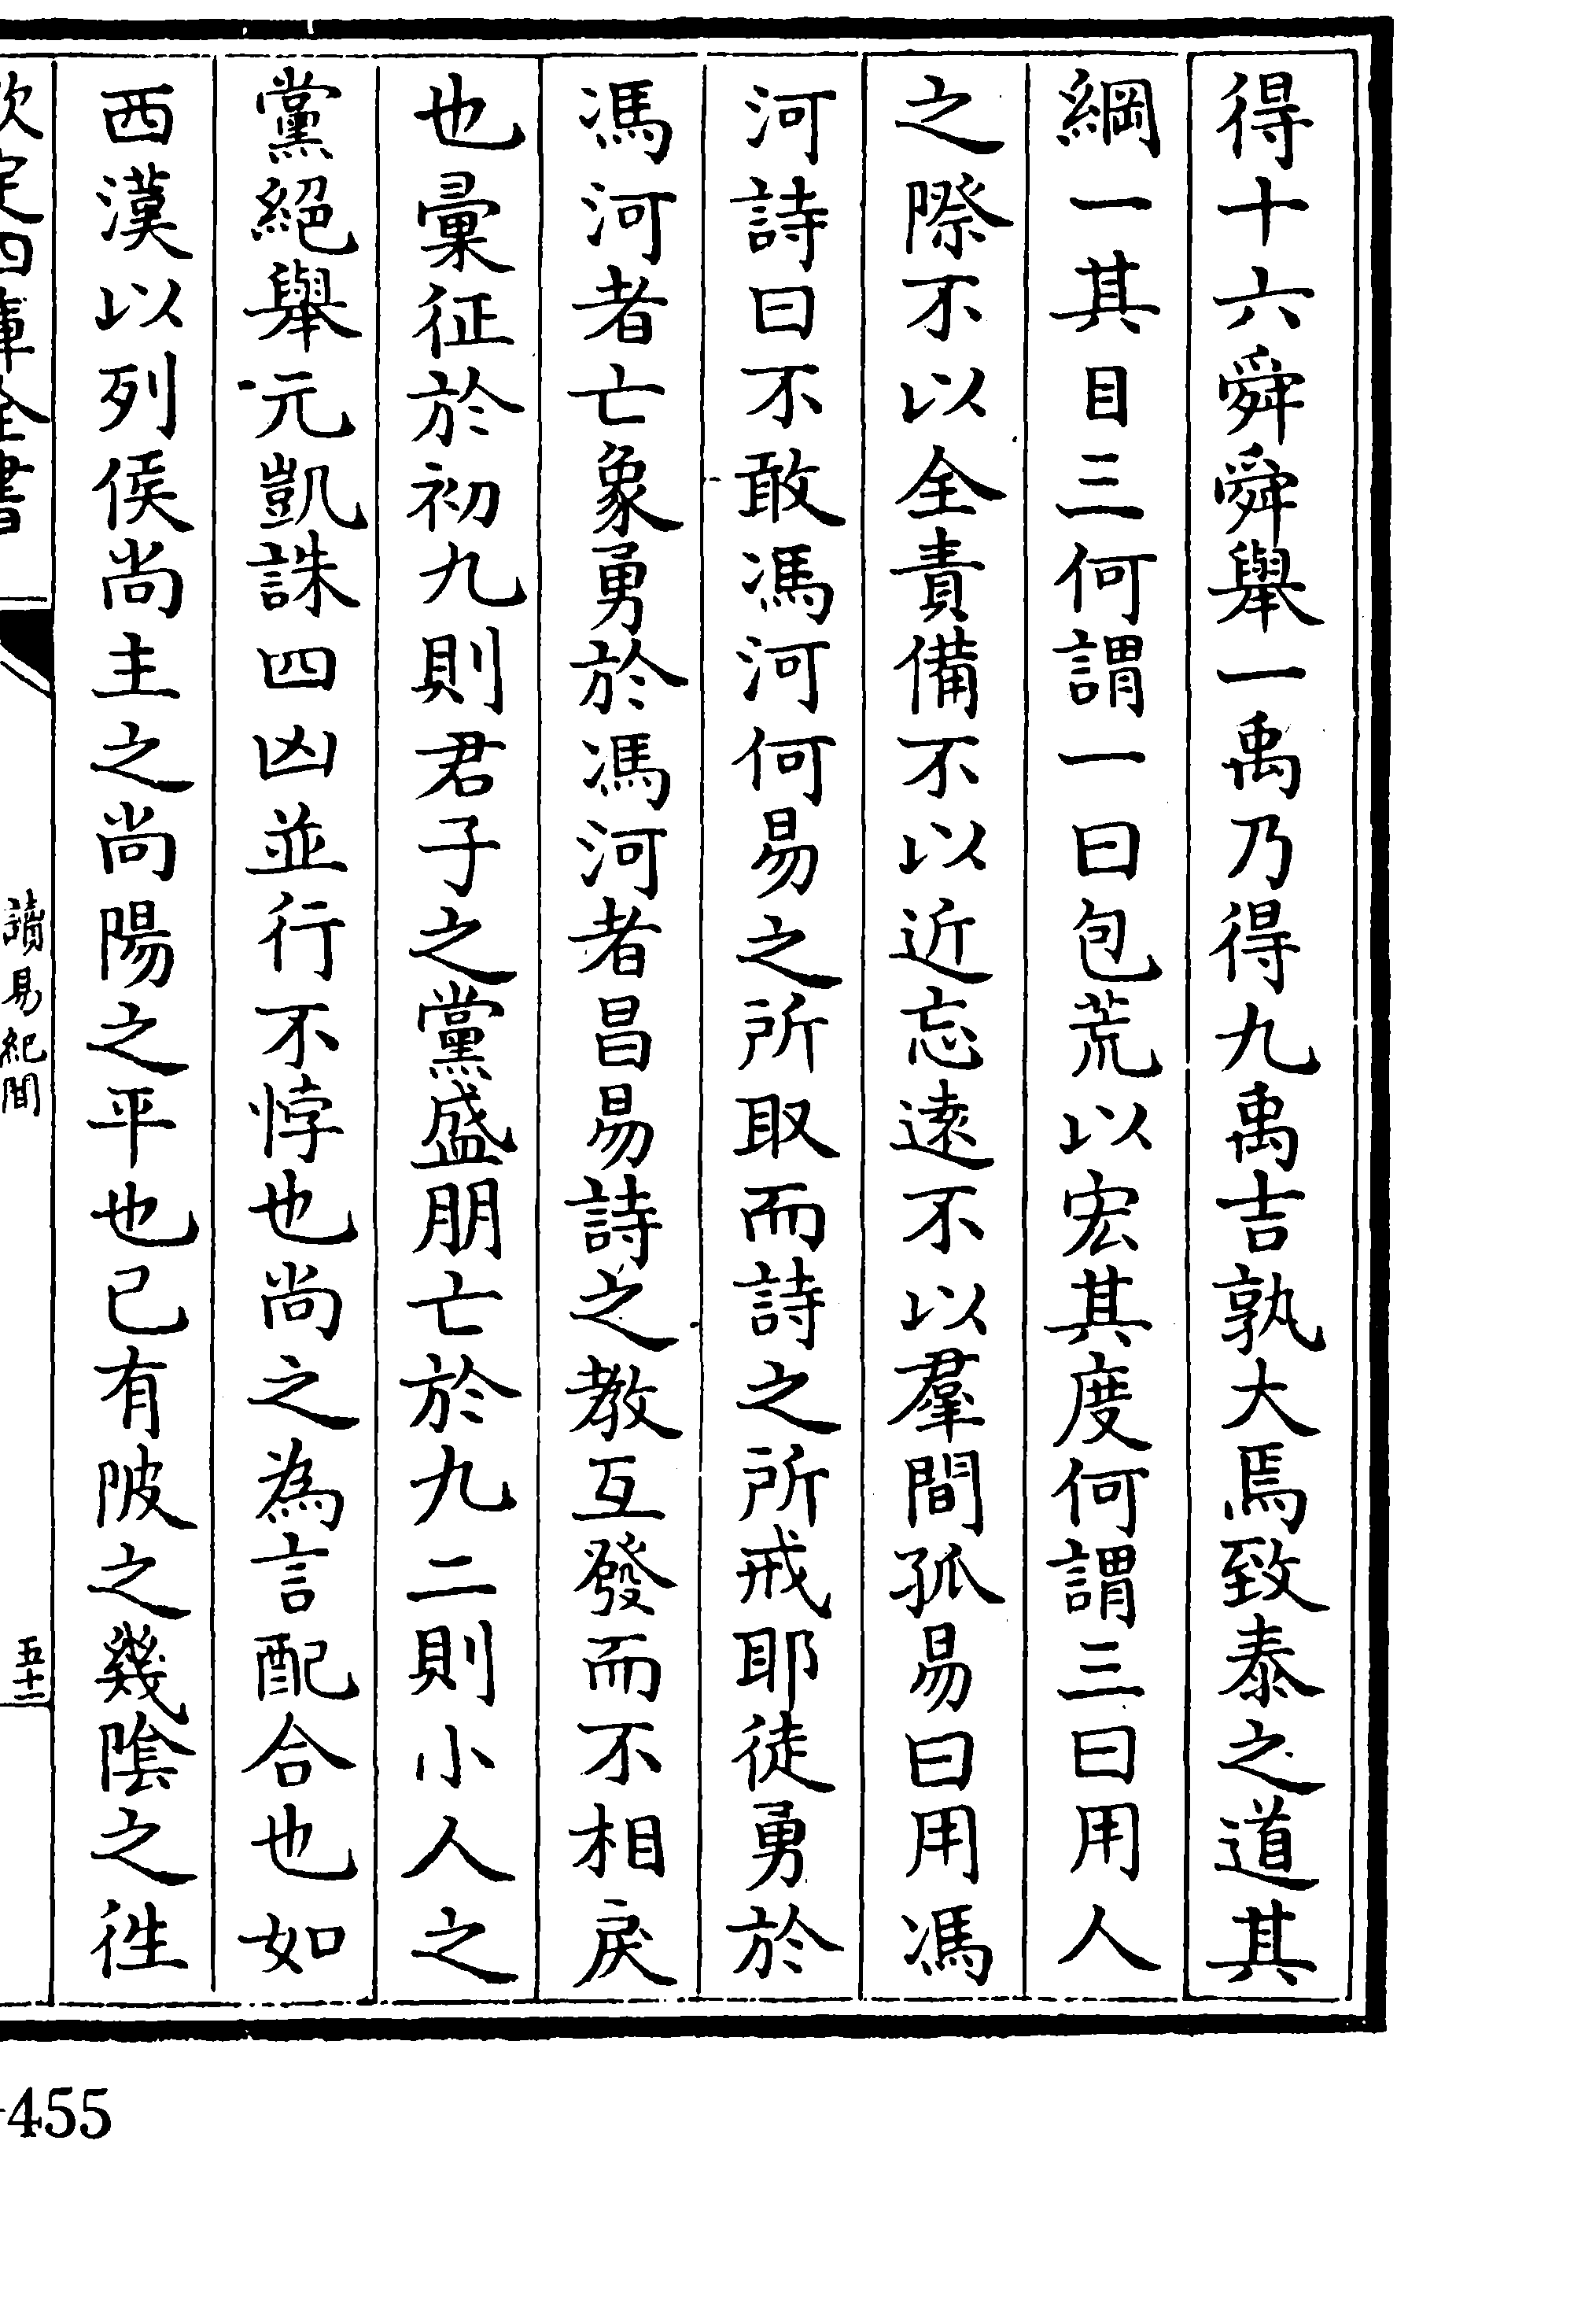 得十六舜舜舉一禹乃得九禹吉孰大焉致泰之道其
綱一其目三何謂一曰包荒以宏其度何謂三曰用人
之際不以全責備不以近忘遠不以羣間孤易曰用馮
河詩曰不敢馮河何易之所取而詩之所戒耶徒勇於
馮河者亡象勇於馮河者昌易詩之教互發而不相戾
也彙征於初九則君子之黨盛朋亡於九二則小人之
黨絕舉元凱誅四凶並行不悖也尚之為言配合也如
西漢以列侯尚主之尚陽之平也已有陂之幾陰之徃
欽定四庫全書
讀易紀聞
五十二
455